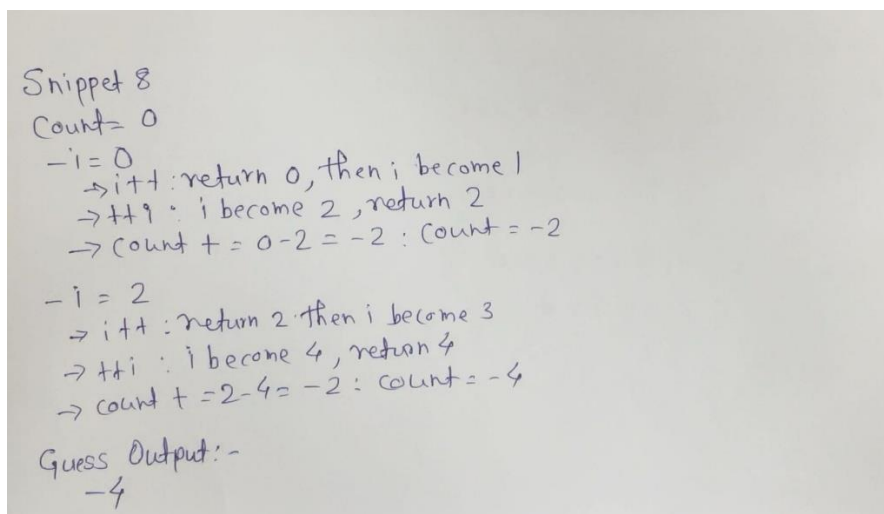 Snippet 8
Count = 0
- i = 0
→ i++ : return 0, then i become 1
→ ++i : i become 2, return 2
→ count + = 0-2 = -2 : Count = -2
- i = 2
→ i++ : return 2 then i become 3
→ ++i : i become 4, return 4
→ count + = 2-4 = -2 : count = -4
Guess Output:-
-4